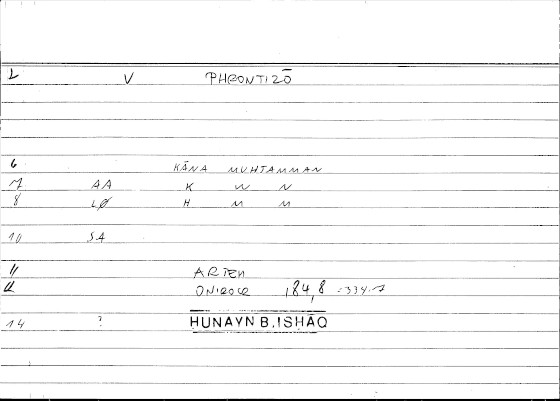 L V PHRONTIZŌ
6 KĀNA MUHTAMMAN
7 AA K W N
8 LØ H M M
10 SA
11 ARTEM
12 ONIROCR 184,8 = 334.7
14 ? HUNAYN B. ISHĀQ